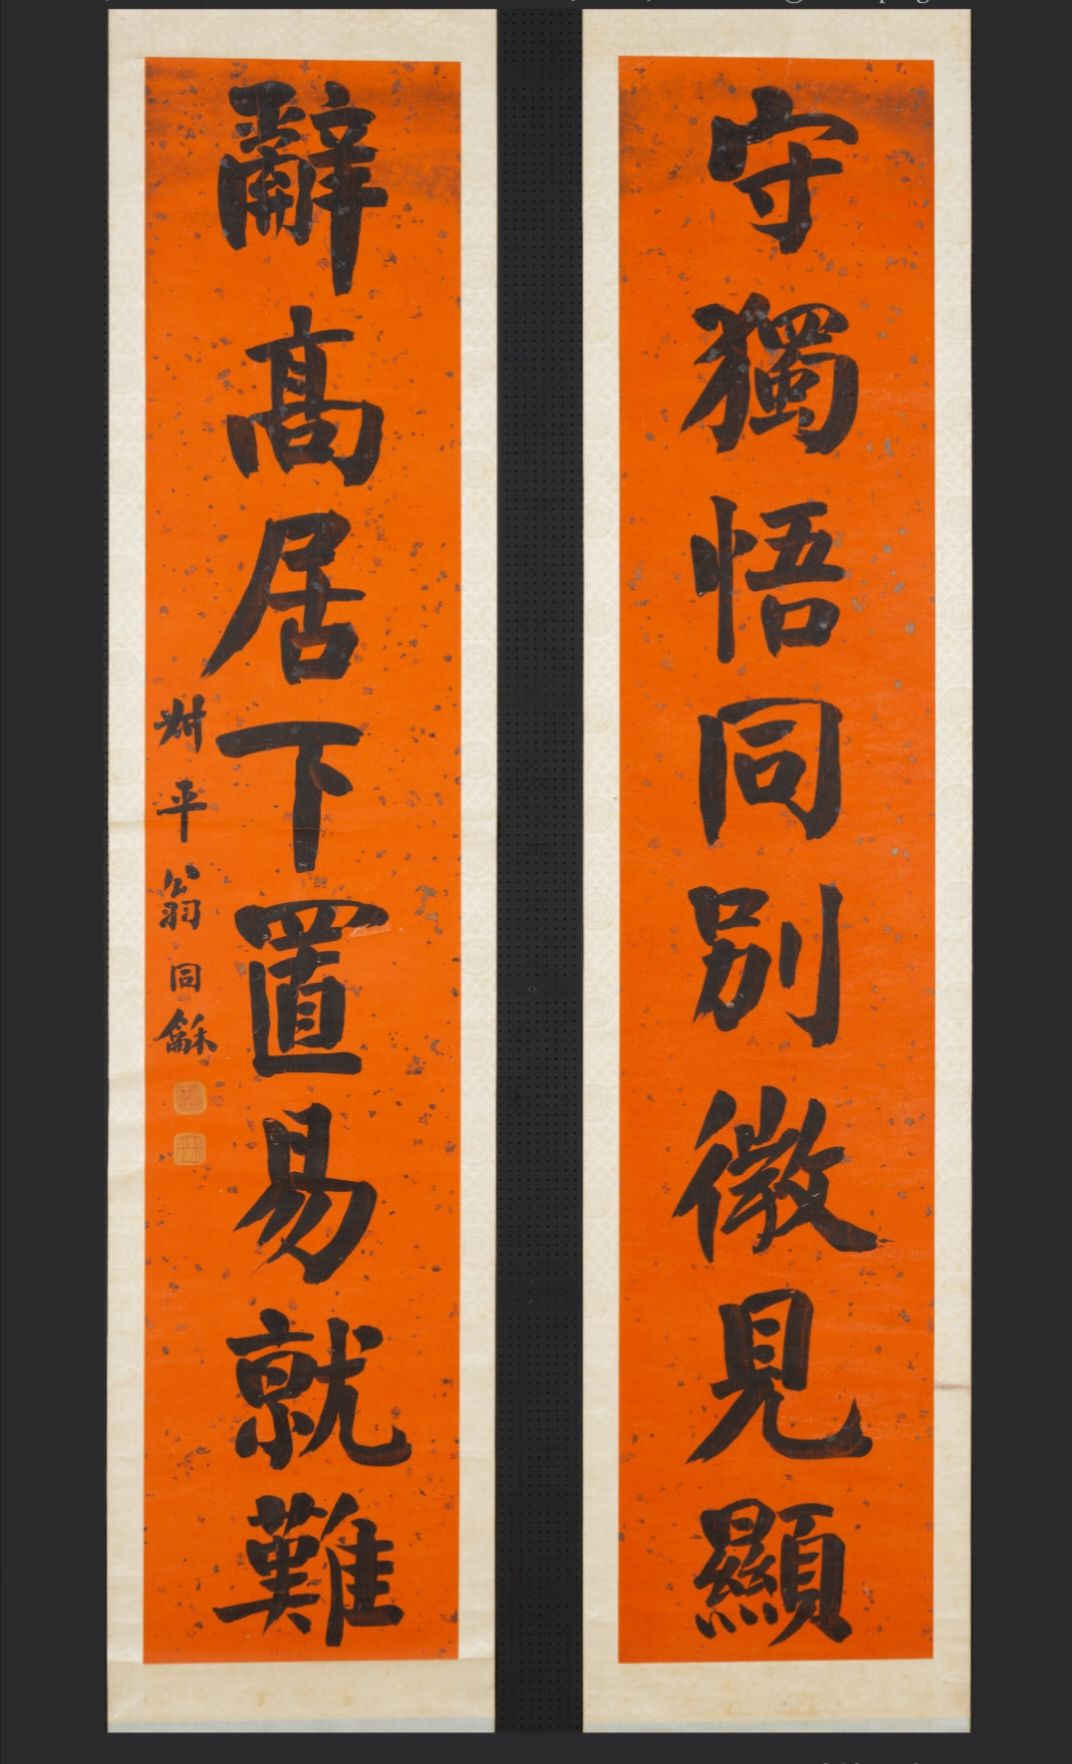 守獨悟同別微見顯
辭高居下置易就難
尗平翁同龢